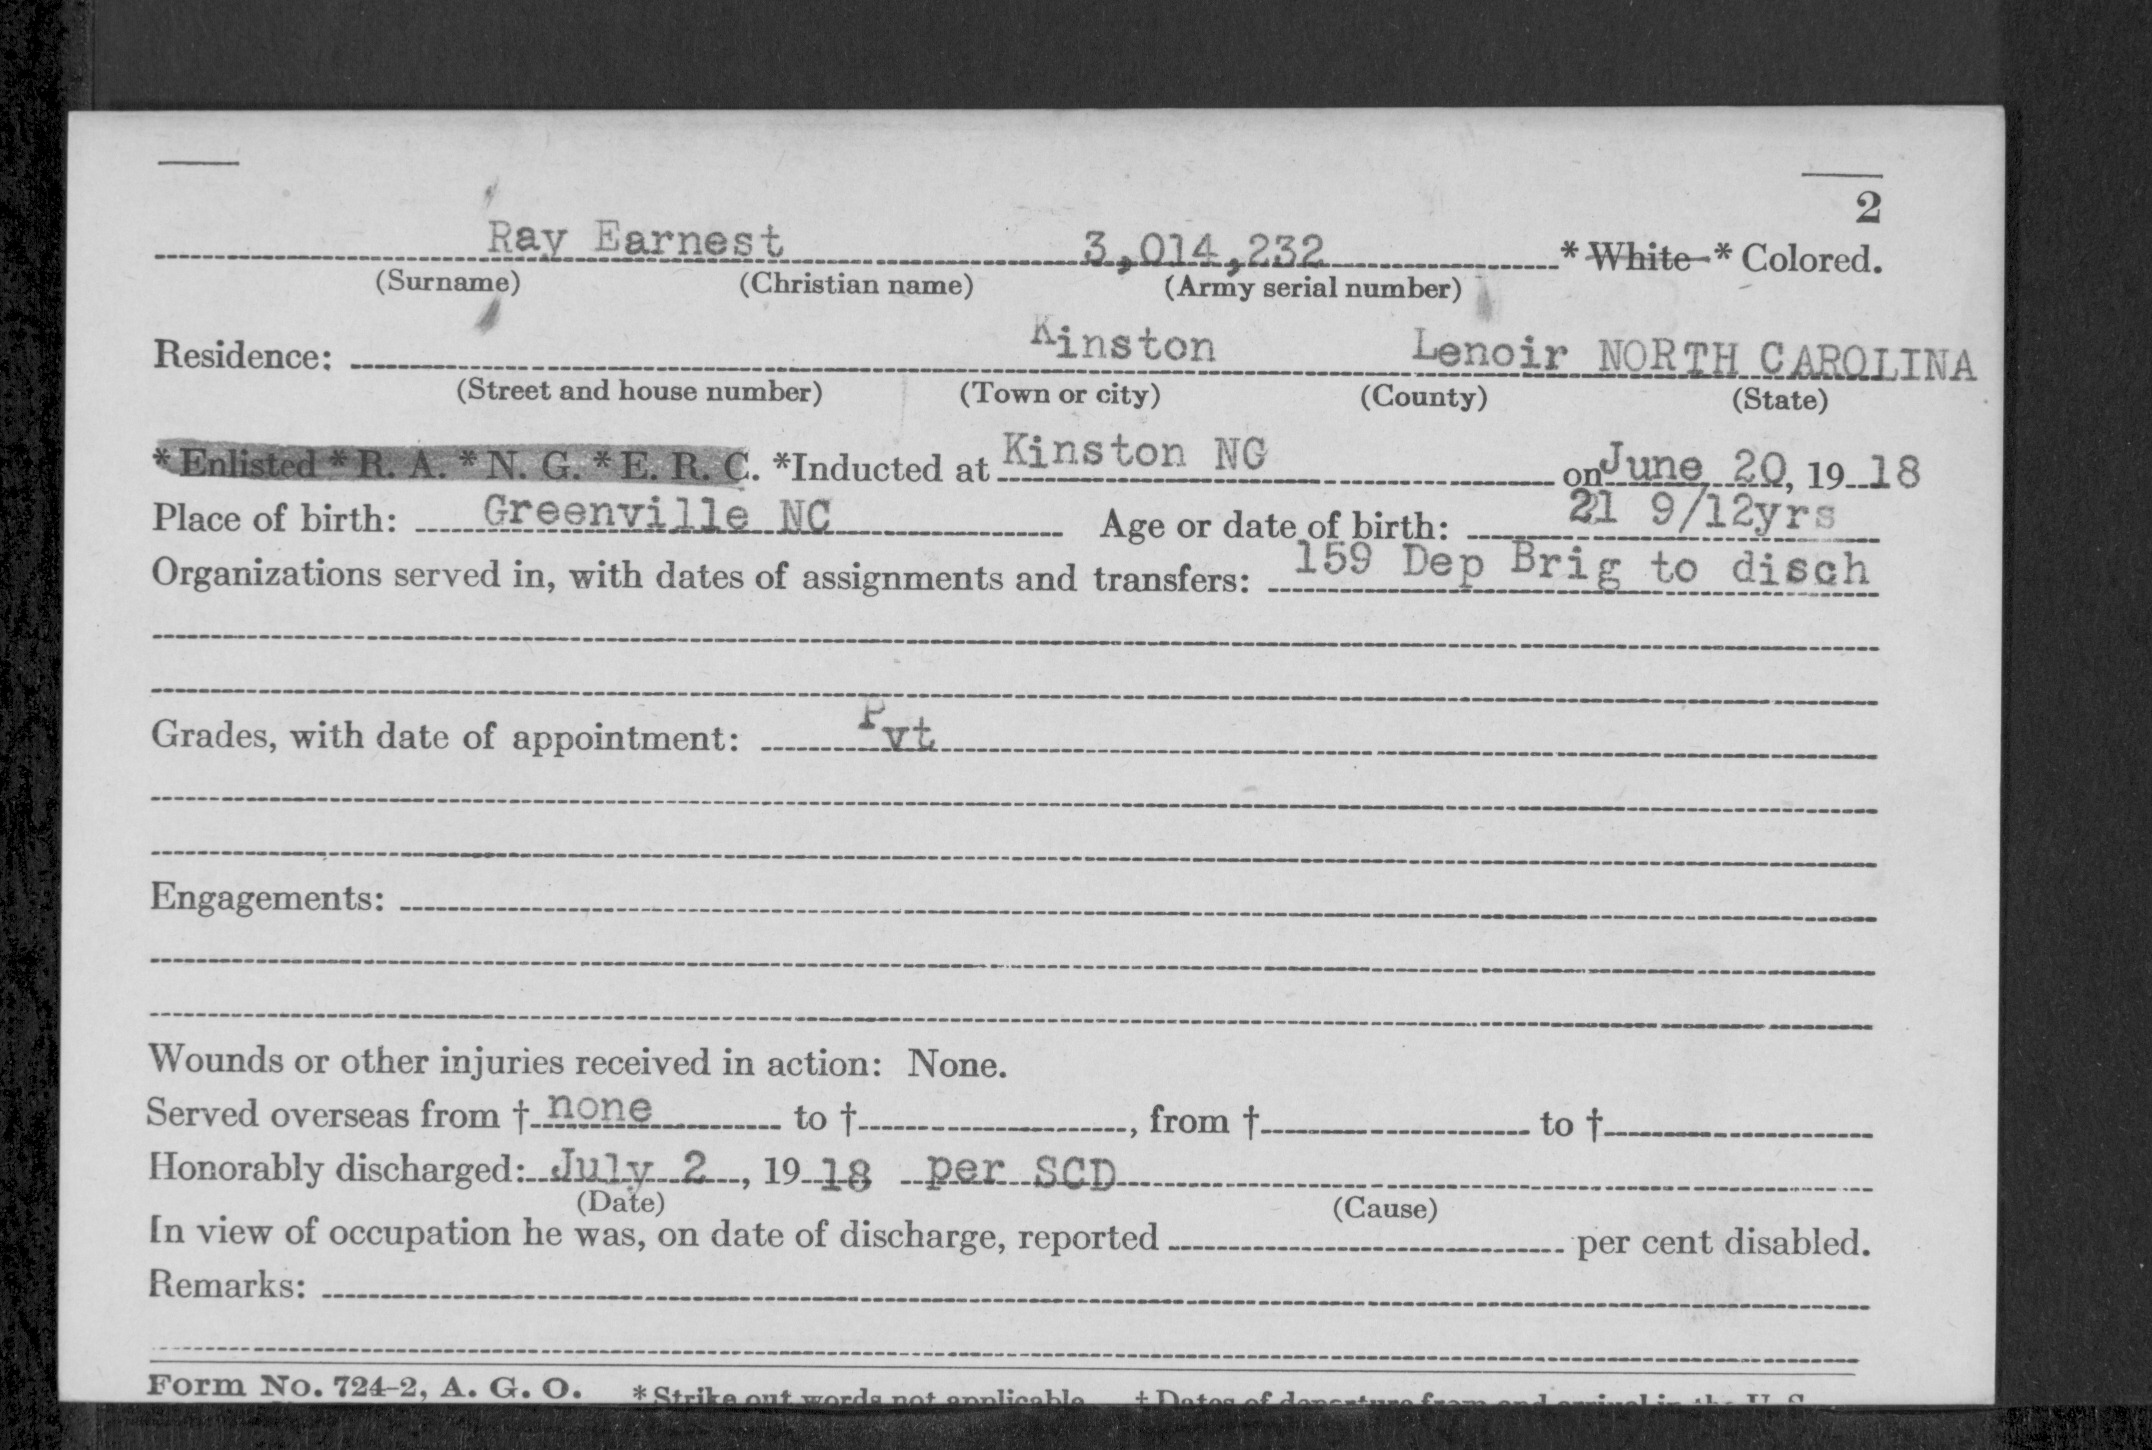 2
Ray Earnest 3,014,232 * White * Colored.
(Surname) (Christian name) (Army serial number)
Residence: Kinston Lenoir NORTH CAROLINA
(Street and house number) (Town or city) (County) (State)
* Enlisted * R. A. * N. G. * E. R. C. *Inducted at Kinston NC on June 20, 19 18
Place of birth: Greenville NC Age or date of birth: 21 9/12yrs
Organizations served in, with dates of assignments and transfers: 159 Dep Brig to disch
Grades, with date of appointment: Pvt
Engagements:
Wounds or other injuries received in action: None.
Served overseas from † none to † , from † to †
Honorably discharged: July 2 , 19 18 per SCD
(Date) (Cause)
In view of occupation he was, on date of discharge, reported per cent disabled.
Remarks:
Form No. 724-2, A. G. O. * Strike out words not applicable † Dates of departure from and arrival in the U. S.